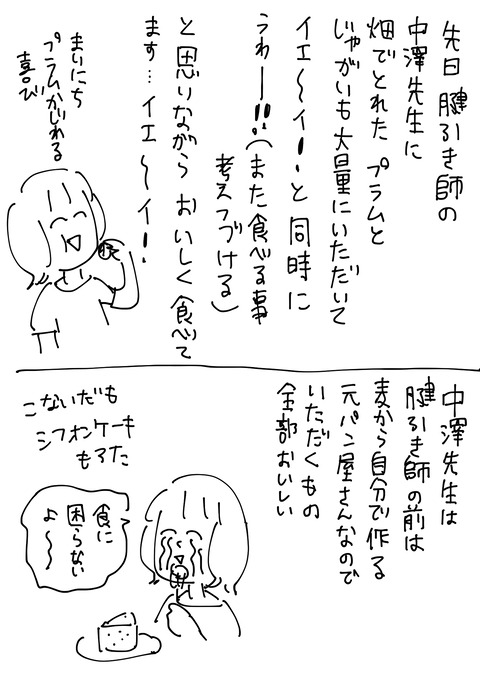 先日 腱引き師の
中澤先生に
畑でとれた プラムと
じゃがいも大量にいただいて
イエ〜イ!と同時に
うわー!!(また食べる事
考えつづける)
と思いながら おいしく食べて
ます…イエ〜イ!
まいにち
プラムかじれる
喜び
中澤先生は
腱引き師の前は
麦から自分で作る
元パン屋さんなので
いただくもの
全部おいしい
こないだも
シフォンケーキ
もろた
食に
困らない
よ〜〜